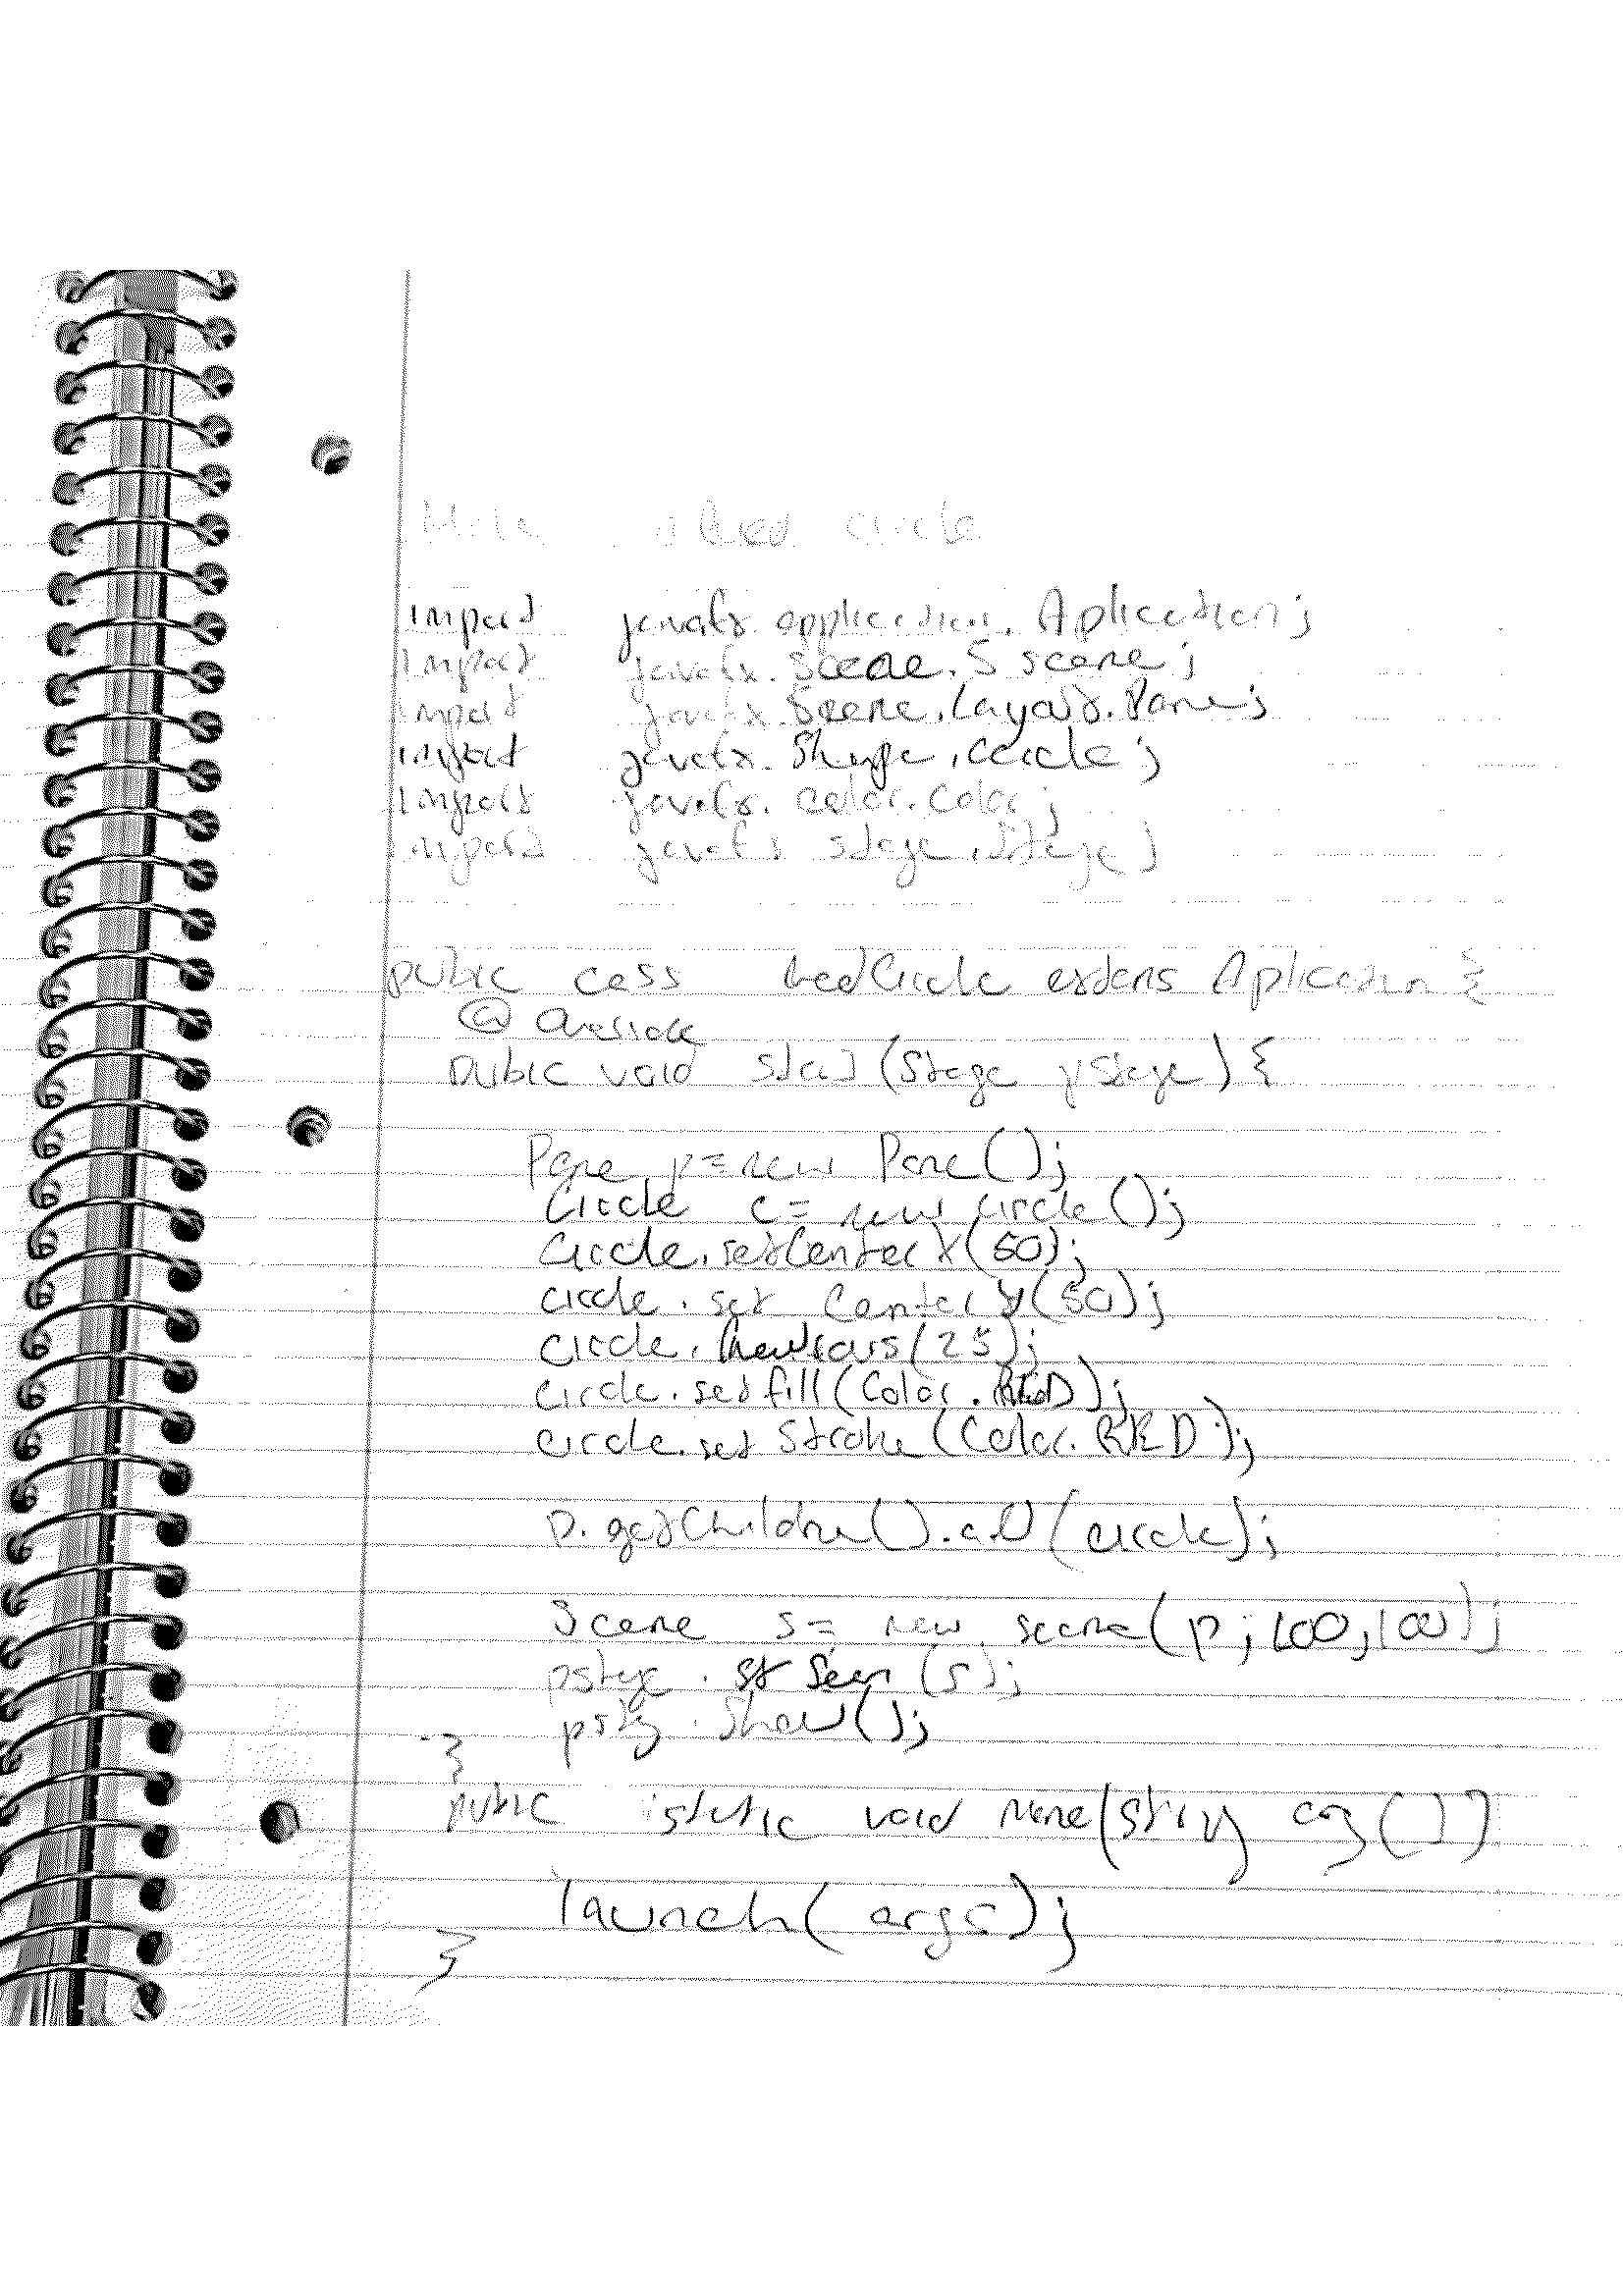 Red circle
import javafx application. Aplication;
import javafx. Scene. S scene;
import javafx. Scene. Layout. Pane;
import javafx. Shape. Circle;
import javafx. Color. Color;
import javafx stage. Stage;
pubic cass RedCircle extens Aplication {
@ Override
pubic void start (Stage pStage) {
Pane p = new Pane();
Circle c = new circle ();
Circle. setCenter X (50);
circle. set Center y (50);
circle. (25);
circle. set fill (Color. RED);
circle. set Stroke (Color. RED);
p. getChildre(). add (circle);
Scene s = new scene (p; 100, 100);
pstage. st Scen (s);
pstg. show();
}
pubic static void (String arg [])
launch ( args );
}